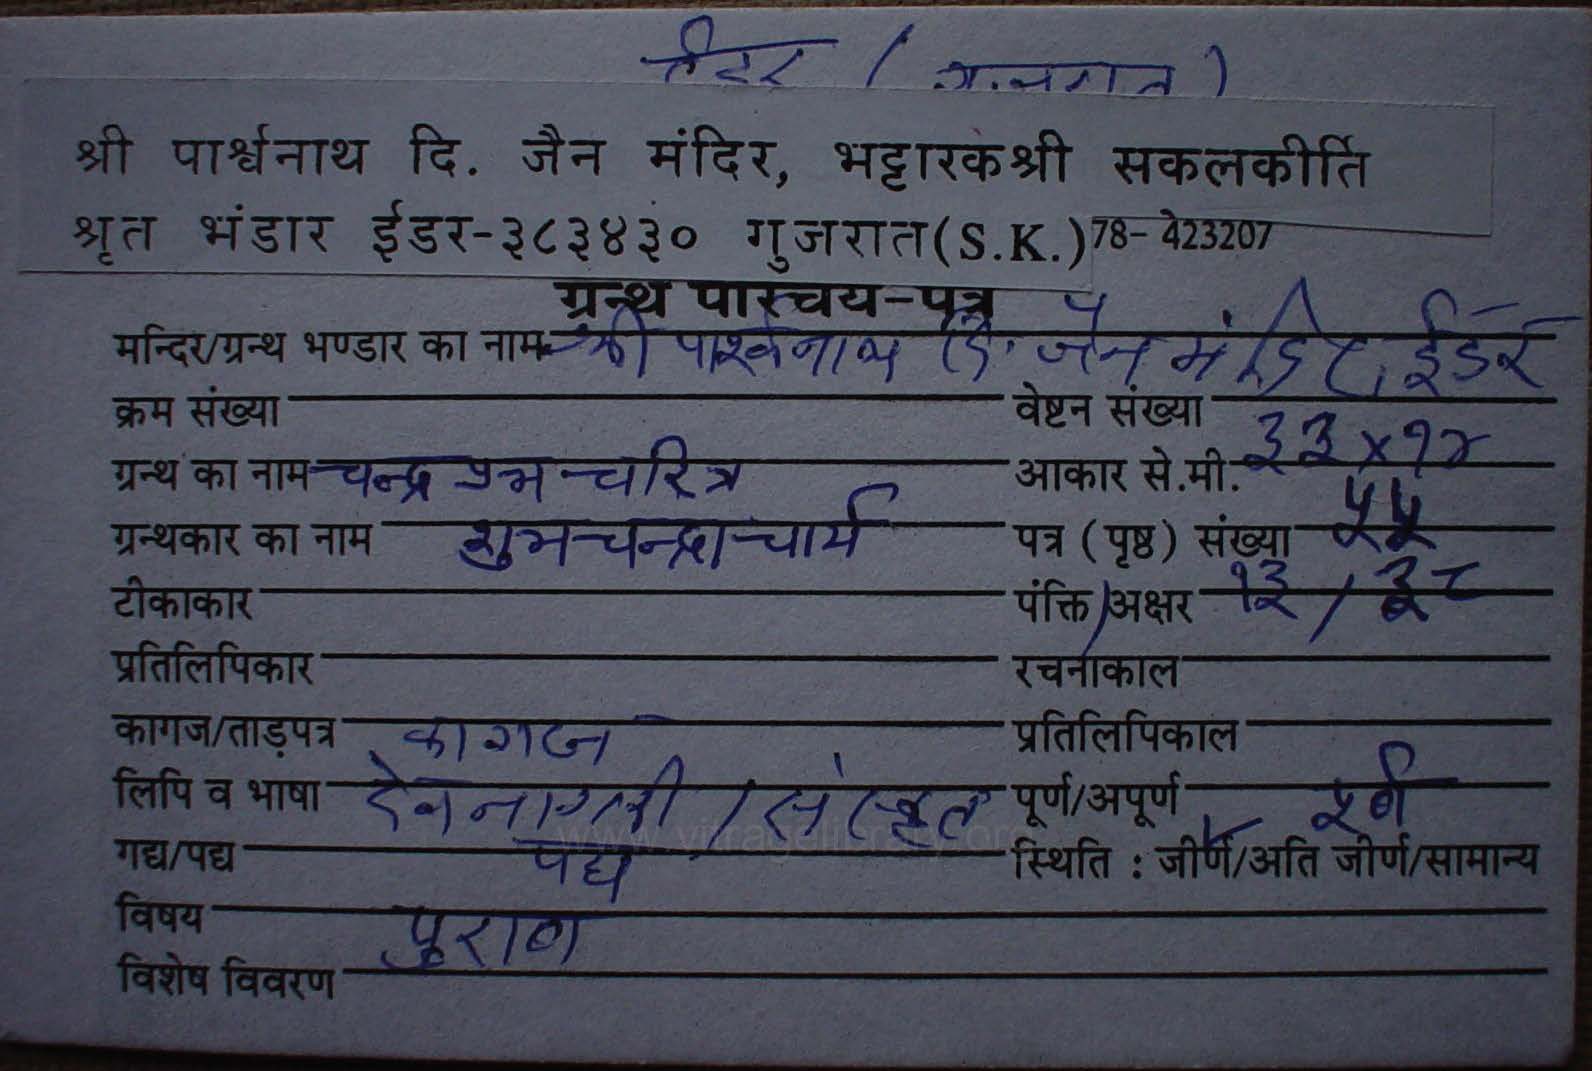 श्री पार्श्वनाथ दि. जैन मंदिर, भट्टारकश्री सकलकीर्ति
श्रृत भंडार ईडर-३८३४३० गुजरात(S.K.) 78- 423207
ग्रन्थ परिचय-पत्र
मन्दिर/ग्रन्थ भण्डार का नाम श्री पार्श्वनाथ दि. जैन मंदिर, ईडर
क्रम संख्या वेष्टन संख्या
ग्रन्थ का नाम चन्द्रप्रभ चरित्र आकार से.मी. ३३ x १४
ग्रन्थकार का नाम शुभचन्द्राचार्य पत्र (पृष्ठ) संख्या ५५
टीकाकार पंक्ति/अक्षर १३ / ३८
प्रतिलिपिकार रचनाकाल
कागज/ताड़पत्र कागज प्रतिलिपिकाल
लिपि व भाषा देवनागरी / संस्कृत पूर्ण/अपूर्ण पूर्ण
गद्य/पद्य पद्य स्थिति : जीर्ण/अति जीर्ण/सामान्य
विषय पुराण
विशेष विवरण